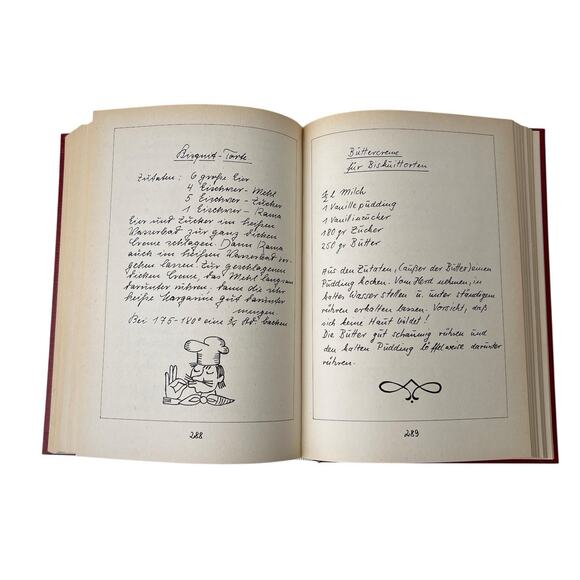 Bisquit-Torte
Zutaten: 6 große Eier
4 Eischwer-Mehl
5 Eischwer-Zucker
1 Eischwer-Rama
Eier und Zucker im heißen
Wasserbad zur ganz dicken
Creme schlagen. Dann Rama
auch im heißen Wasserbad zer-
gehen lassen. Zur geschlagenen
dicken Creme das Mehl langsam
darunter rühren, dann die sehr
heiße Margarine gut darunter
mengen.
Bei 175-180° eine Std. backen
288
Büttercreme
für Biskuittorten
½ l Milch
1 Vanillepüdding
1 Vanillinzücker
180 gr Zücker
250 gr Bütter
Aus den Zutaten, (außer der Bütter) einen
Püdding kochen. Vom Herd nehmen, in
kaltes Wasser stellen u. unter ständigem
rühren erkalten lassen. Vorsicht, daß
sich keine Haut bildet!
Die Bütter gut schaumig rühren und
den kalten Püdding löffelweise darunter
rühren.
289